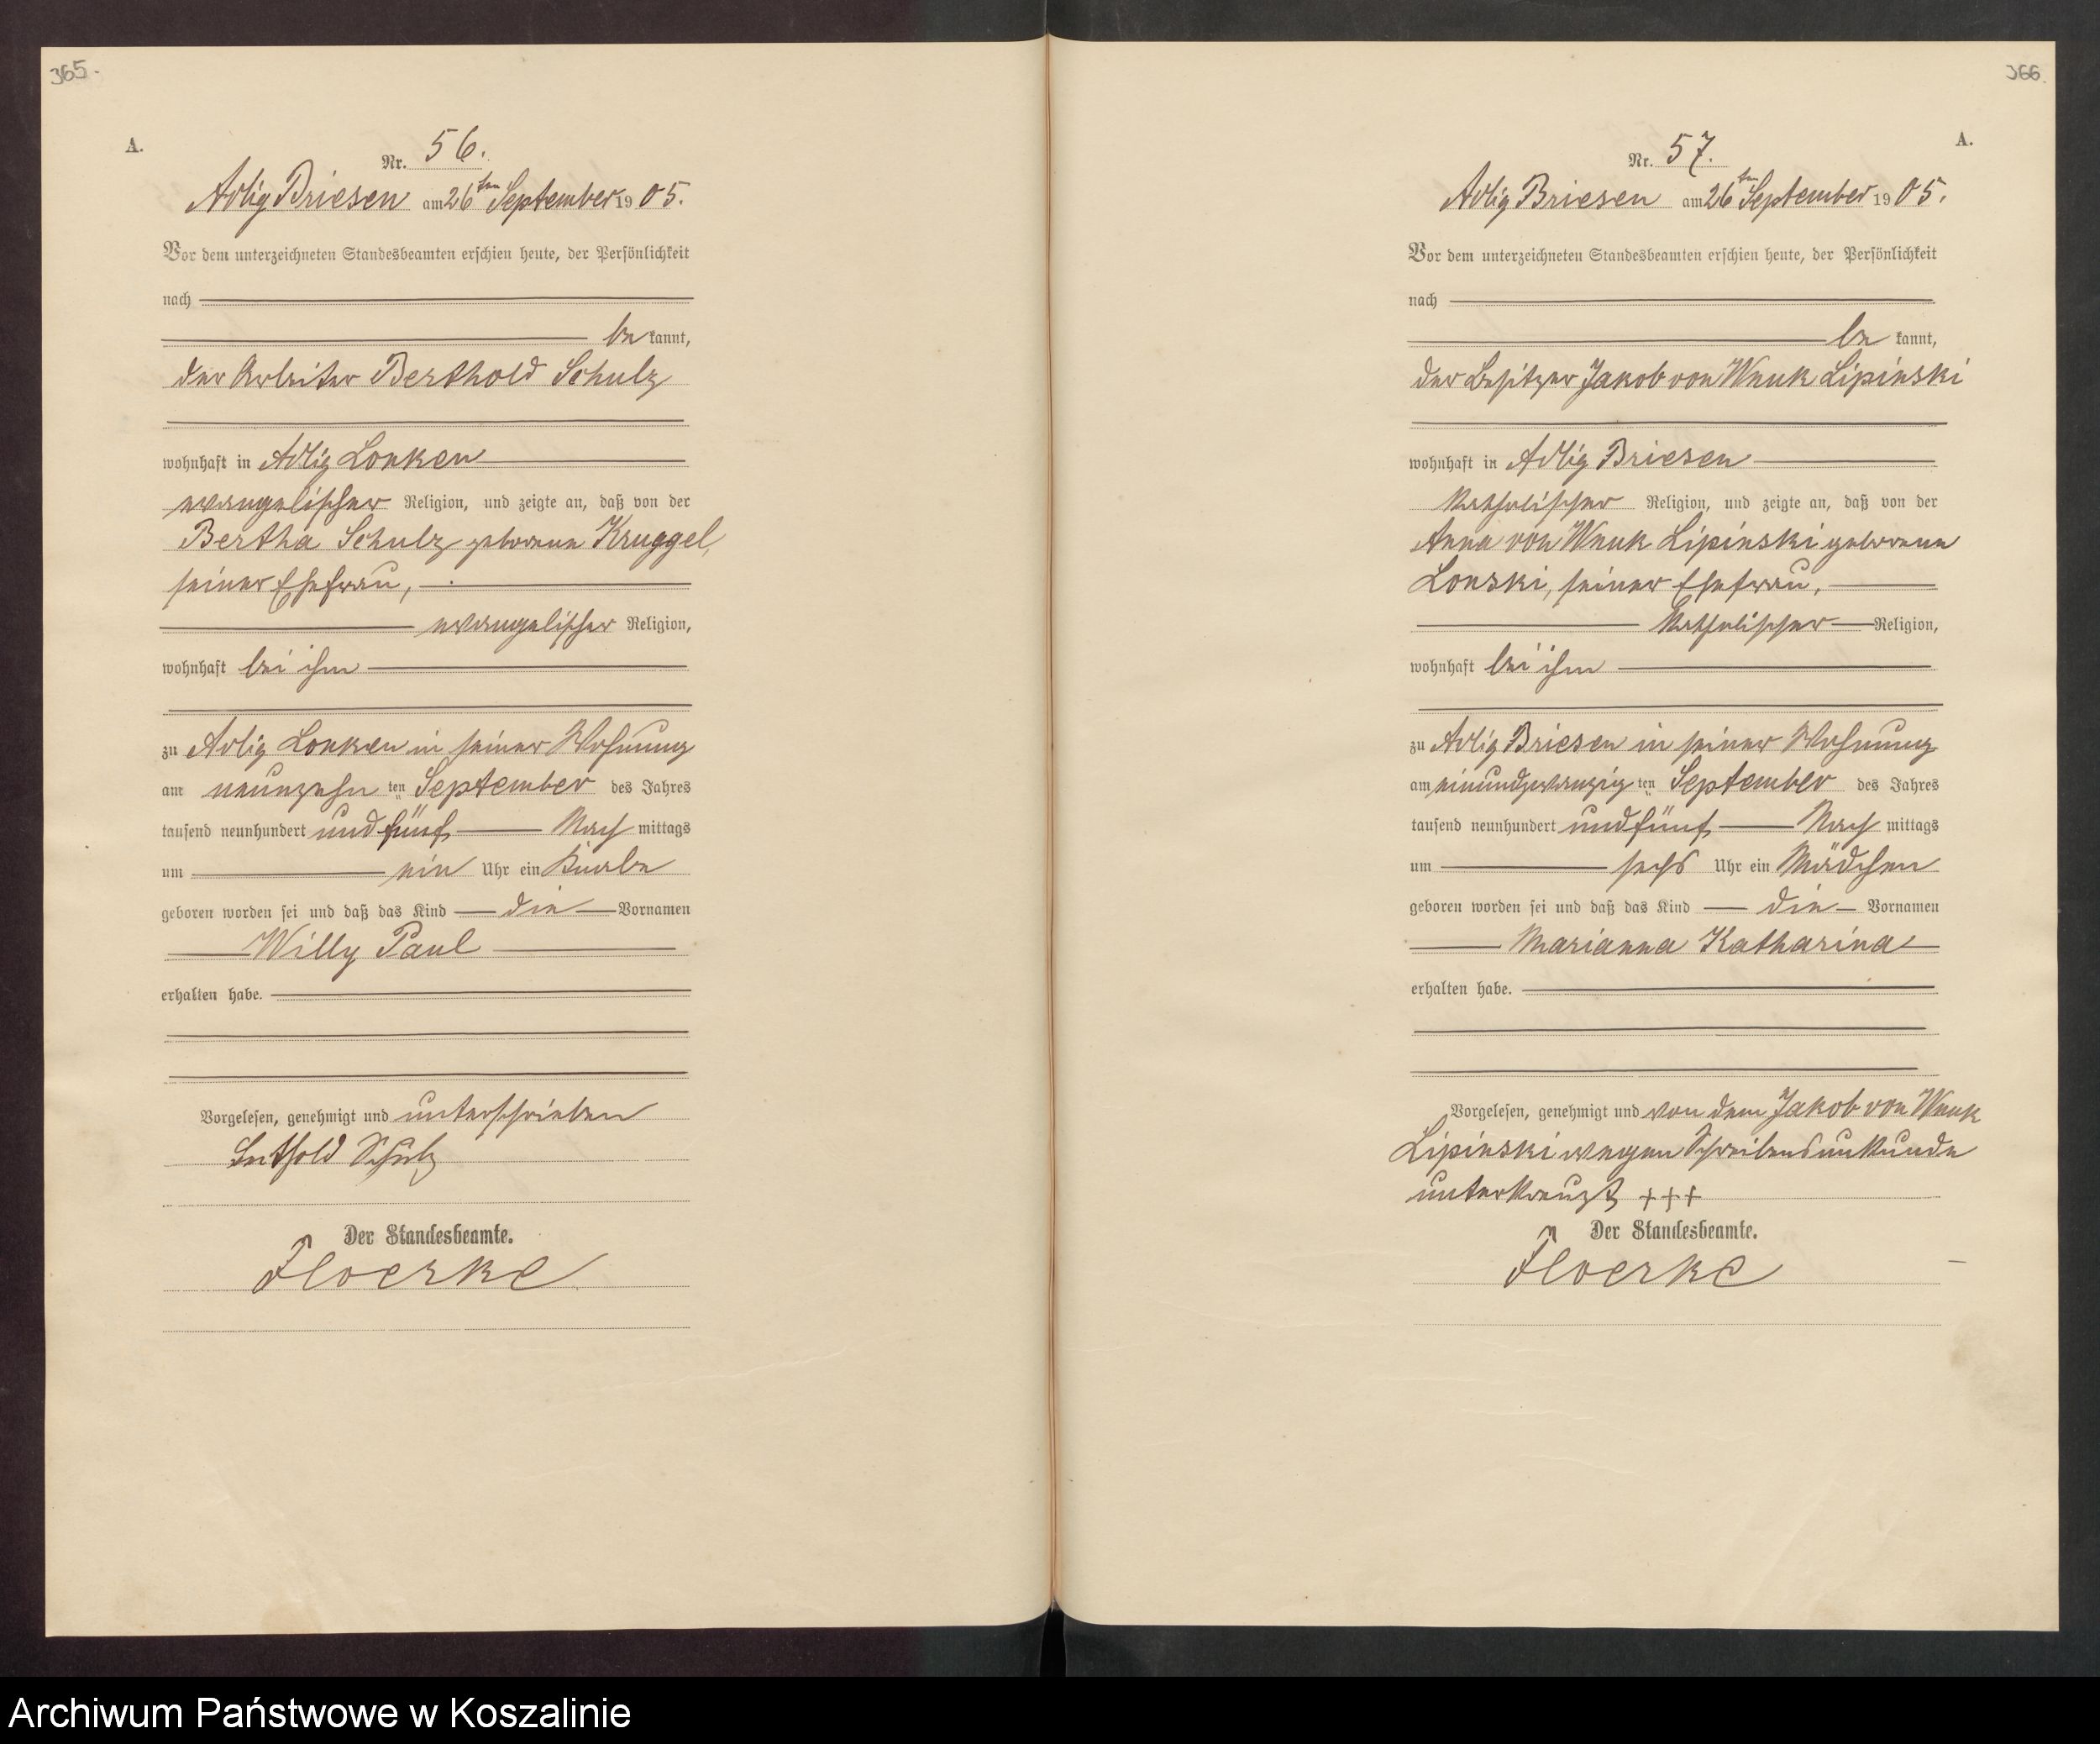 365.
A.
Nr. 56.
Adlig Briesen am 26ten September 1905.
Vor dem unterzeichneten Standesbeamten erschien heute, der Persönlichkeit
nach
be kannt,
der Arbeiter Berthold Schulz
wohnhaft in Adlig Lonken
evangelischer Religion, und zeigte an, daß von der
Bertha Schulz geborene Kruggel,
seiner Ehefrau,
evangelischer Religion,
wohnhaft bei ihm
zu Adlig Lonken in seiner Wohnung
am neunzehn ten September des Jahres
tausend neunhundert und fünf Nach mittags
um ein Uhr ein Knabe
geboren worden sei und daß das Kind die Vornamen
Willy Paul
erhalten habe.
Vorgelesen, genehmigt und unterschrieben
Berthold Schulz
Der Standesbeamte.
Floerke
366.
A.
Nr. 57.
Adlig Briesen am 26ten September 1905.
Vor dem unterzeichneten Standesbeamten erschien heute, der Persönlichkeit
nach
be kannt,
der Besitzer Jakob von Wnuk Lipinski
wohnhaft in Adlig Briesen
katholischer Religion, und zeigte an, daß von der
Anna von Wnuk Lipinski geborene
Lonski, seiner Ehefrau,
katholischer Religion,
wohnhaft bei ihm
zu Adlig Briesen in seiner Wohnung
am einundzwanzig ten September des Jahres
tausend neunhundert und fünf Nach mittags
um sechs Uhr ein Mädchen
geboren worden sei und daß das Kind die Vornamen
Marianna Katharina
erhalten habe.
Vorgelesen, genehmigt und von dem Jakob von Wnuk
Lipinski wegen Schreibensunkunde
unterkreuzt +++
Der Standesbeamte.
Floerke
Archiwum Państwowe w Koszalinie